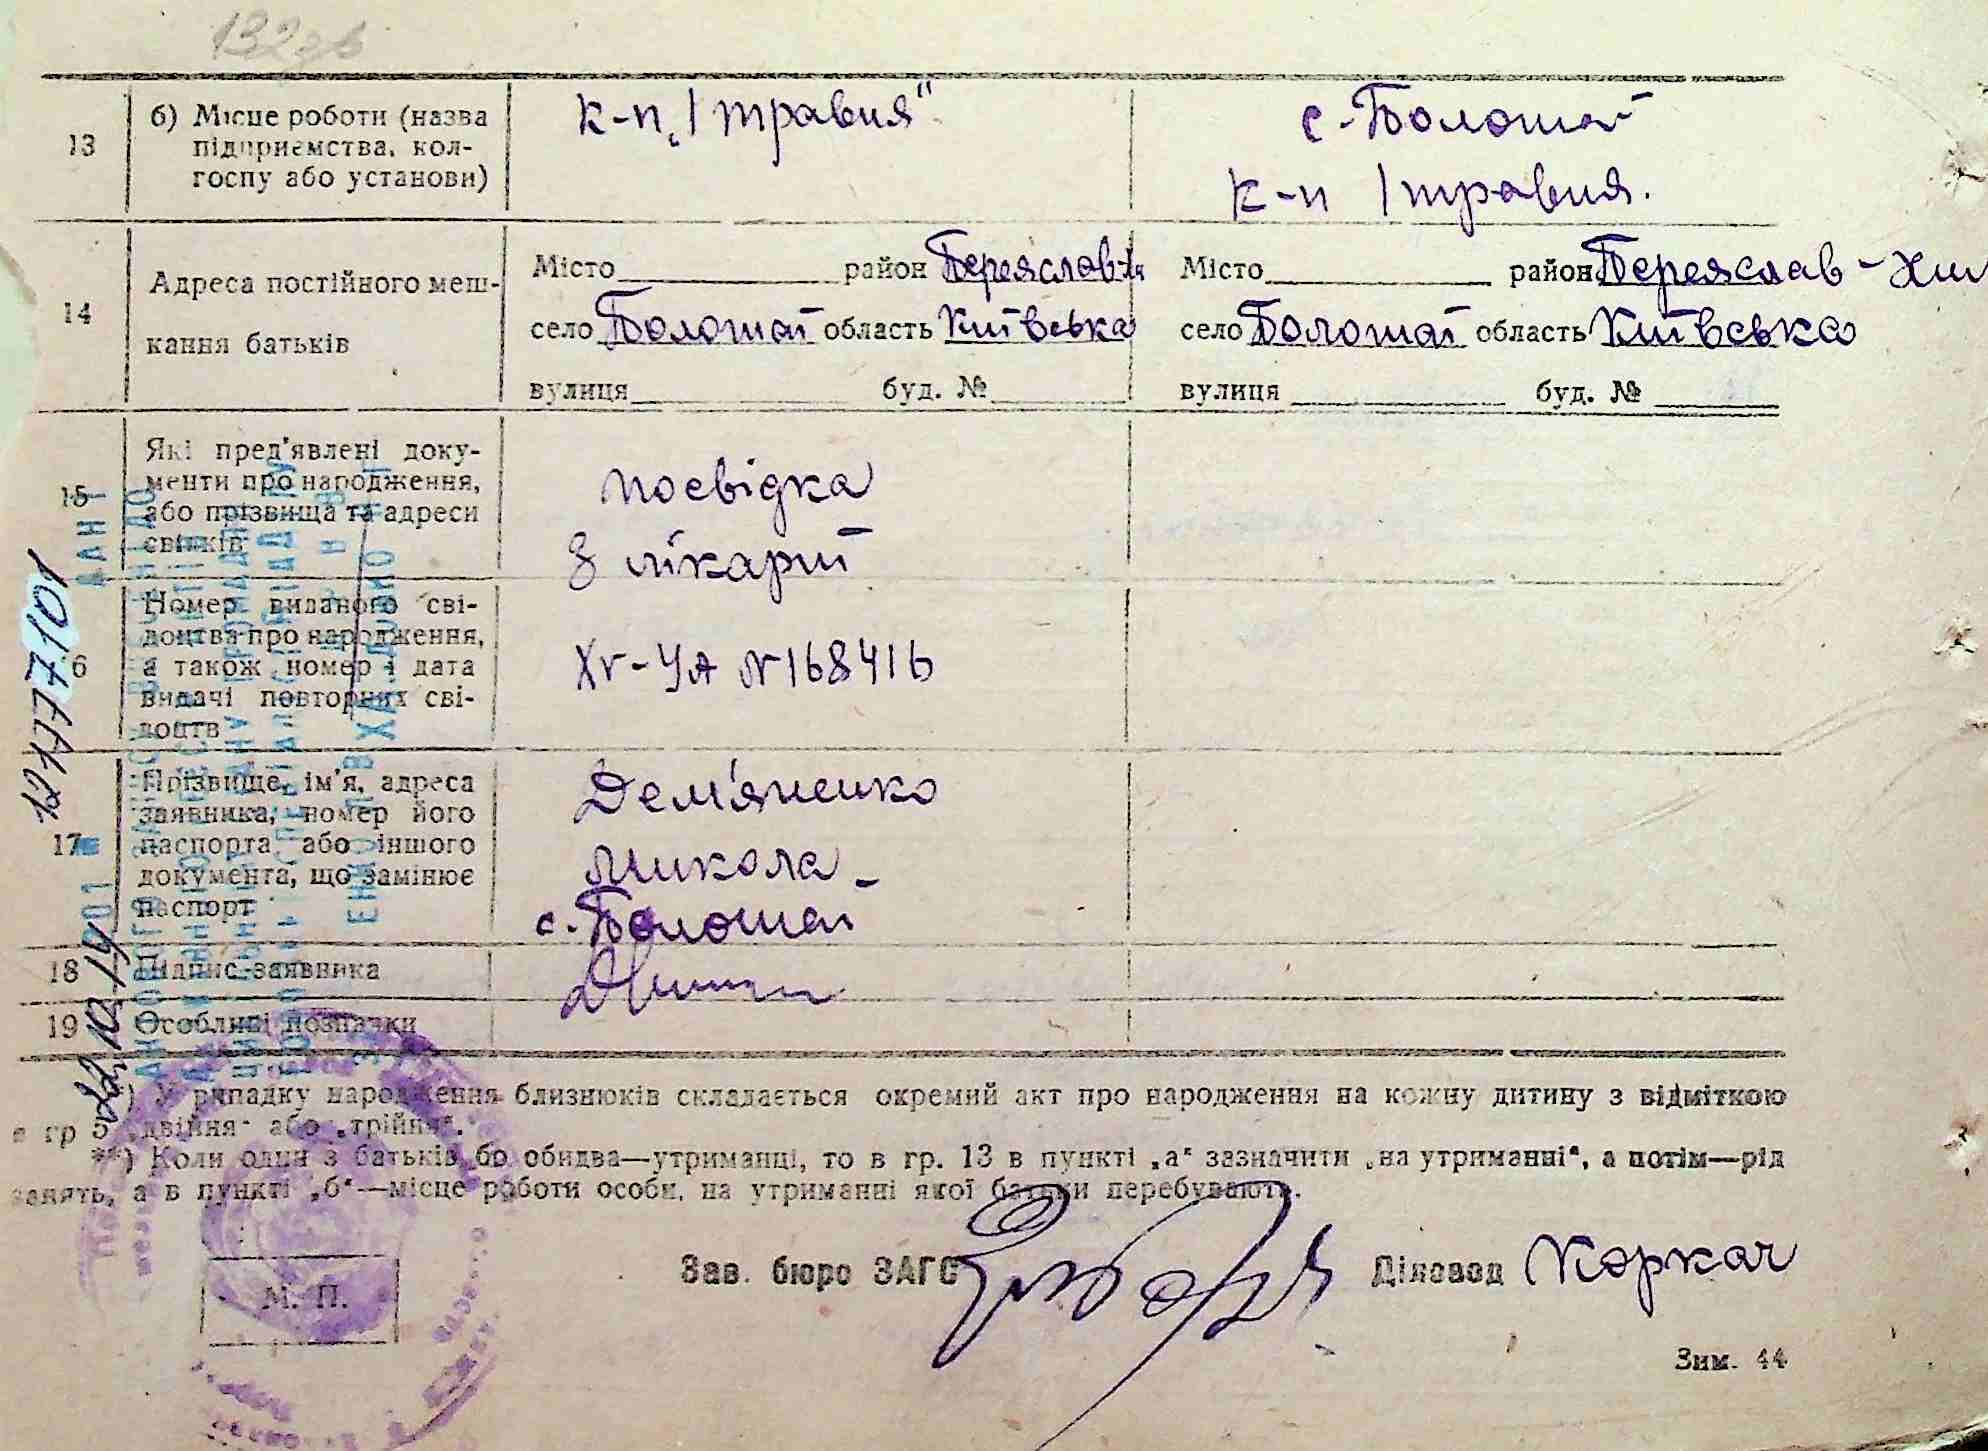 132зв
13
б) Місце роботи (назва
підприємства, кол-
госпу або установи)
к-п „1 травня"
с-Болошаї
к-п 1 травня.
14
Адреса постійного меш-
кання батьків
Місто район Переяслав-Х
село Болошаї область Київська
вулиця буд. №
Місто район Переяслав-Хм
село Болошаї область Київська
вулиця буд. №
15
Які пред'явлені доку-
менти про народження,
або прізвища та адреси
свідків
посвідка
з лікарні
6
Номер виданого сві-
доцтва про народження,
а також номер і дата
видачі повторних сві-
доцтв
ХV-УА №168416
17
Прізвище, ім'я, адреса
заявника, номер його
паспорта або іншого
документа, що замінює
паспорт
Дем'яненко
Микола
с. Болошаї
18
Підпис заявника
19
Особливі позначки
) У випадку народження близнюків складається окремий акт про народження на кожну дитину з відміткою
в гр 5 „двійня" або „трійня".
**) Коли один з батьків бо обидва—утриманці, то в гр. 13 в пункті „а" зазначити „на утриманні", а потім—рід
занять, а в пункті „б"—місце роботи особи, на утриманні якої батьки перебувають.
Зав. бюро ЗАГС
Діловод Коркач
М. П.
Зим. 44